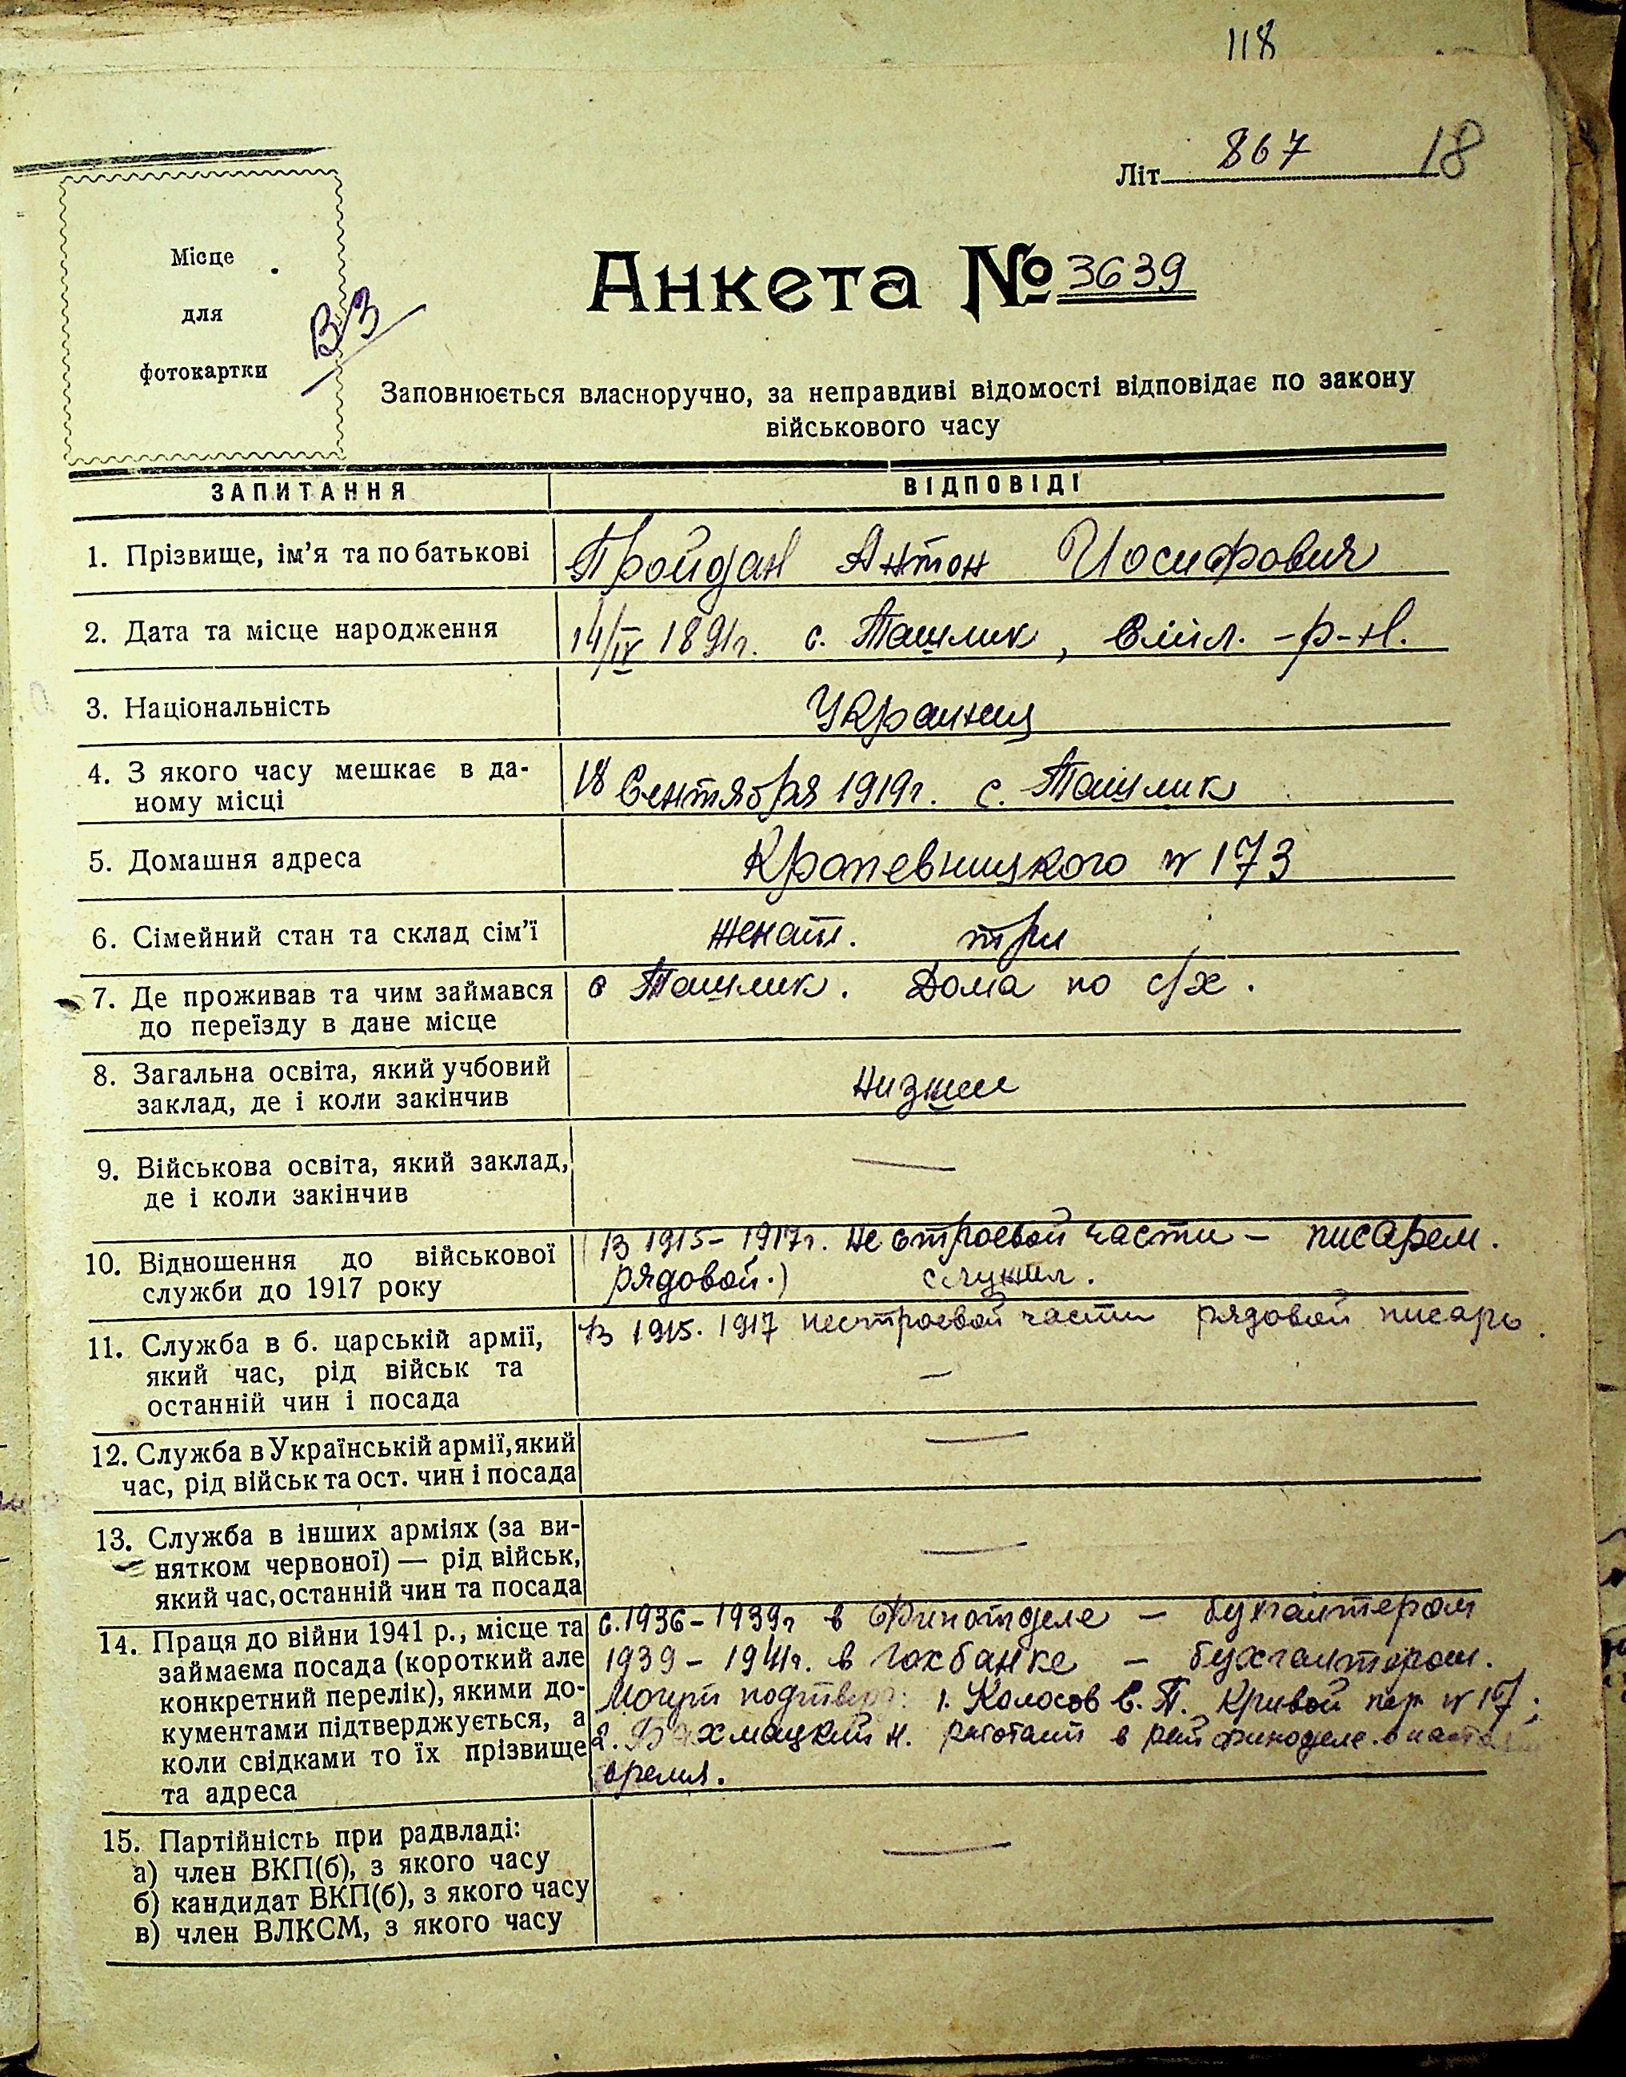 118
Літ 867 18
Місце
для
фотокартки
ВЗ
Анкета № 3639
Заповнюється власноручно, за неправдиві відомості відповідає по закону
військового часу
ЗАПИТАННЯ ВІДПОВІДІ
1. Прізвище, ім'я та по батькові Пройдан Антон Иосифович
2. Дата та місце народження 14/IV 1891г. с. Ташлик, Сміл. -р-н.
3. Національність Украинец
4. З якого часу мешкає в да-
ному місці 18 Сентября 1919г. с. Ташлик
5. Домашня адреса Кропевницкого № 173
6. Сімейний стан та склад сім'ї Женат. три
7. Де проживав та чим займався с Ташлик. Дома по с/х.
до переїзду в дане місце
8. Загальна освіта, який учбовий
заклад, де і коли закінчив низшее
9. Військова освіта, який заклад, —
де і коли закінчив
10. Відношення до військової (В 1915-1917г. не строевой части - писарем.
служби до 1917 року рядовой.) служил.
11. Служба в б. царській армії, В 1915. 1917 нестроевой части рядовой писарь.
який час, рід військ та —
останній чин і посада
12. Служба в Українській армії, який —
час, рід військ та ост. чин і посада
13. Служба в інших арміях (за ви-
нятком червоної) — рід військ, —
який час, останній чин та посада
14. Праця до війни 1941 р., місце та с.1936-1939г в Финотделе - бухгалтером
займаєма посада (короткий але 1939-1941г. в Госбанке - бухгалтером.
конкретний перелік), якими до- Могут 1. Колосов С. П. Кривой пер № 17;
кументами підтверджується, а 2. Бахмацкий Н. работает в рай финоделе.
коли свідками то їх прізвище время.
та адреса
15. Партійність при радвладі: —
а) член ВКП(б), з якого часу
б) кандидат ВКП(б), з якого часу
в) член ВЛКСМ, з якого часу